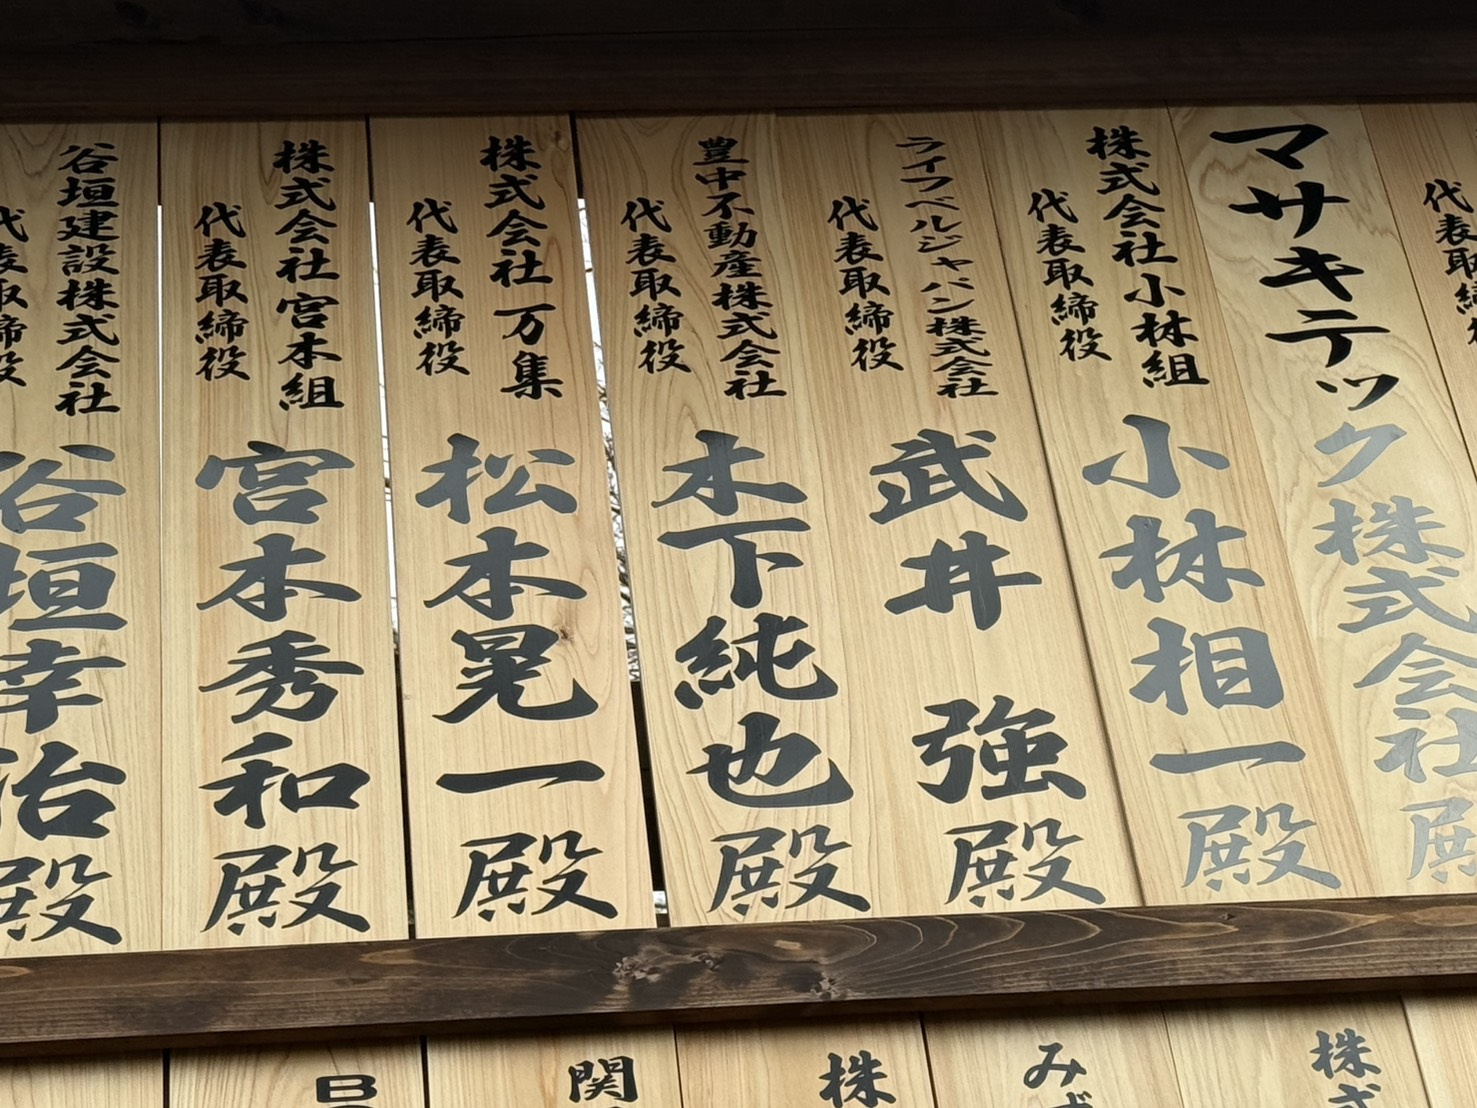 代表取締役
マサキテック株式会社殿
株式会社小林組
代表取締役
小林相一殿
ライフベルジャパン株式会社
代表取締役
武井強殿
豊中不動産株式会社
代表取締役
木下純也殿
株式会社万集
代表取締役
松本晃一殿
株式会社宮本組
代表取締役
宮本秀和殿
谷垣建設株式会社
代表取締役
谷垣幸治殿
株式
みず
株
関
B